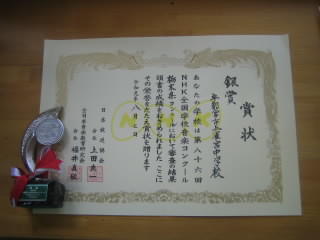 銀賞
賞状
宇都宮市立雀宮中学校
あなたの学校は第八十六回
NHK全国学校音楽コンクール
栃木県コンクールにおいて審査の結果
頭書の成績をおさめられました ここに
その栄誉をたたえ賞状を贈ります
令和元年八月
日本放送協会
会長 上田良一